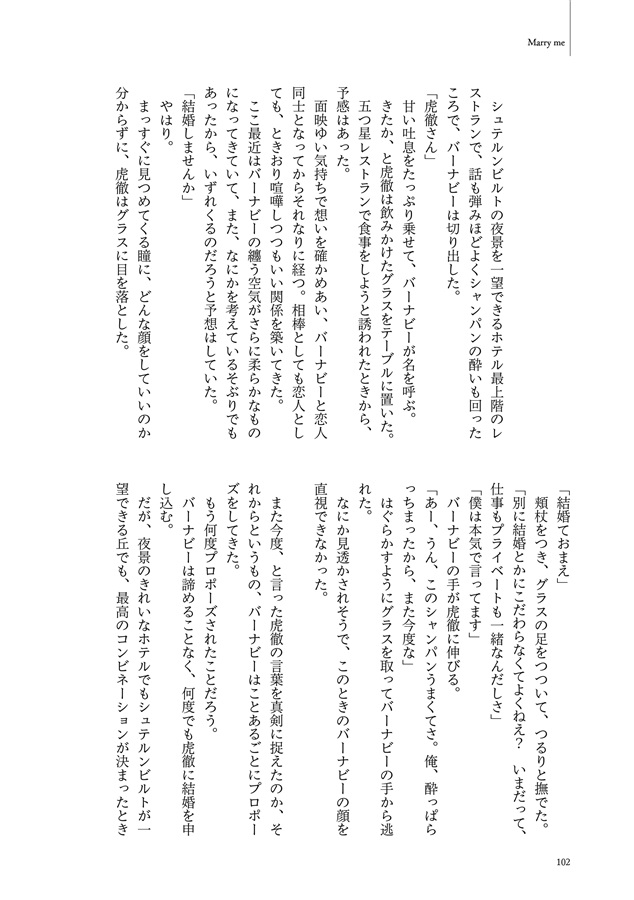 Marry me
　シュテルンビルトの夜景を一望できるホテル最上階のレ
ストランで、話も弾みほどよくシャンパンの酔いも回った
ころで、バーナビーは切り出した。
「虎徹さん」
　甘い吐息をたっぷり乗せて、バーナビーが名を呼ぶ。
　きたか、と虎徹は飲みかけたグラスをテーブルに置いた。
　五つ星レストランで食事をしようと誘われたときから、
予感はあった。
　面映ゆい気持ちで想いを確かめあい、バーナビーと恋人
同士となってからそれなりに経つ。相棒としても恋人とし
ても、ときおり喧嘩しつつもいい関係を築いてきた。
　ここ最近はバーナビーの纏う空気がさらに柔らかなもの
になってきていて、また、なにかを考えているそぶりでも
あったから、いずれくるのだろうと予想はしていた。
「結婚しませんか」
　やはり。
　まっすぐに見つめてくる瞳に、どんな顔をしていいのか
分からずに、虎徹はグラスに目を落とした。
「結婚ておまえ」
　頬杖をつき、グラスの足をつついて、つるりと撫でた。
「別に結婚とかにこだわらなくてよくねえ？　いまだって、
仕事もプライベートも一緒なんだしさ」
「僕は本気で言ってます」
　バーナビーの手が虎徹に伸びる。
「あー、うん、このシャンパンうまくてさ。俺、酔っぱら
っちまったから、また今度な」
　はぐらかすようにグラスを取ってバーナビーの手から逃
れた。
　なにか見透かされそうで、このときのバーナビーの顔を
直視できなかった。
　また今度、と言った虎徹の言葉を真剣に捉えたのか、そ
れからというもの、バーナビーはことあるごとにプロポー
ズをしてきた。
　もう何度プロポーズされたことだろう。
　バーナビーは諦めることなく、何度でも虎徹に結婚を申
し込む。
　だが、夜景のきれいなホテルでもシュテルンビルトが一
望できる丘でも、最高のコンビネーションが決まったとき
102